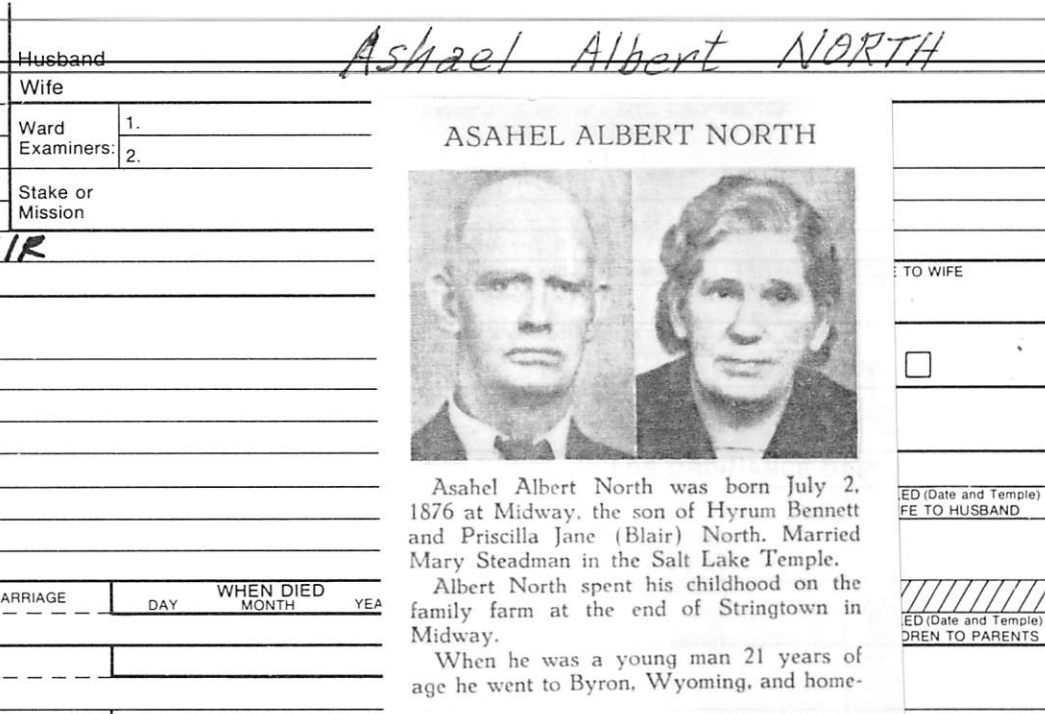 Husband Ashael Albert NORTH
Wife
Ward
Examiners:
1.
2.
Stake or
Mission
IR
ASAHEL ALBERT NORTH
TO WIFE
Asahel Albert North was born July 2,
1876 at Midway, the son of Hyrum Bennett
and Priscilla Jane (Blair) North. Married
Mary Steadman in the Salt Lake Temple.
Albert North spent his childhood on the
family farm at the end of Stringtown in
Midway.
When he was a young man 21 years of
age he went to Byron, Wyoming, and home-
ED (Date and Temple)
FE TO HUSBAND
ARRIAGE
WHEN DIED
DAY MONTH YEA
ED (Date and Temple)
DREN TO PARENTS